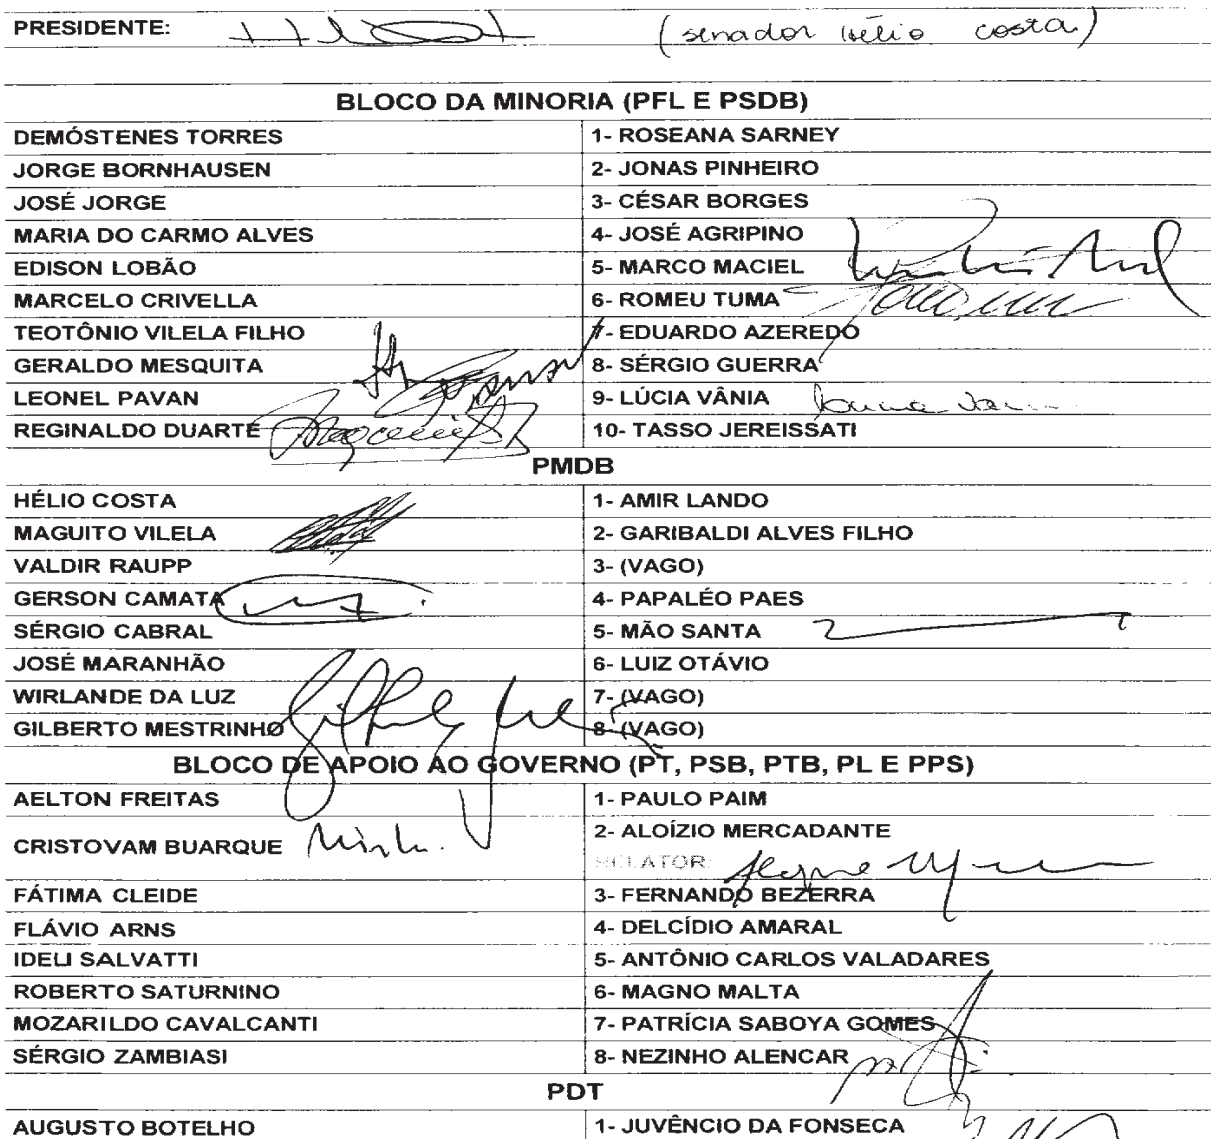 PRESIDENTE: (senador Hélio costa)
BLOCO DA MINORIA (PFL E PSDB)
DEMÓSTENES TORRES 1- ROSEANA SARNEY
JORGE BORNHAUSEN 2- JONAS PINHEIRO
JOSÉ JORGE 3- CÉSAR BORGES
MARIA DO CARMO ALVES 4- JOSÉ AGRIPINO
EDISON LOBÃO 5- MARCO MACIEL
MARCELO CRIVELLA 6- ROMEU TUMA
TEOTÔNIO VILELA FILHO 7- EDUARDO AZEREDO
GERALDO MESQUITA 8- SÉRGIO GUERRA
LEONEL PAVAN 9- LÚCIA VÂNIA
REGINALDO DUARTE 10- TASSO JEREISSATI
PMDB
HÉLIO COSTA 1- AMIR LANDO
MAGUITO VILELA 2- GARIBALDI ALVES FILHO
VALDIR RAUPP 3- (VAGO)
GERSON CAMATA 4- PAPALÉO PAES
SÉRGIO CABRAL 5- MÃO SANTA
JOSÉ MARANHÃO 6- LUIZ OTÁVIO
WIRLANDE DA LUZ 7- (VAGO)
GILBERTO MESTRINHO 8- (VAGO)
BLOCO DE APOIO AO GOVERNO (PT, PSB, PTB, PL E PPS)
AELTON FREITAS 1- PAULO PAIM
CRISTOVAM BUARQUE 2- ALOÍZIO MERCADANTE
RELATOR:
FÁTIMA CLEIDE 3- FERNANDO BEZERRA
FLÁVIO ARNS 4- DELCÍDIO AMARAL
IDELI SALVATTI 5- ANTÔNIO CARLOS VALADARES
ROBERTO SATURNINO 6- MAGNO MALTA
MOZARILDO CAVALCANTI 7- PATRÍCIA SABOYA GOMES
SÉRGIO ZAMBIASI 8- NEZINHO ALENCAR
PDT
AUGUSTO BOTELHO 1- JUVÊNCIO DA FONSECA